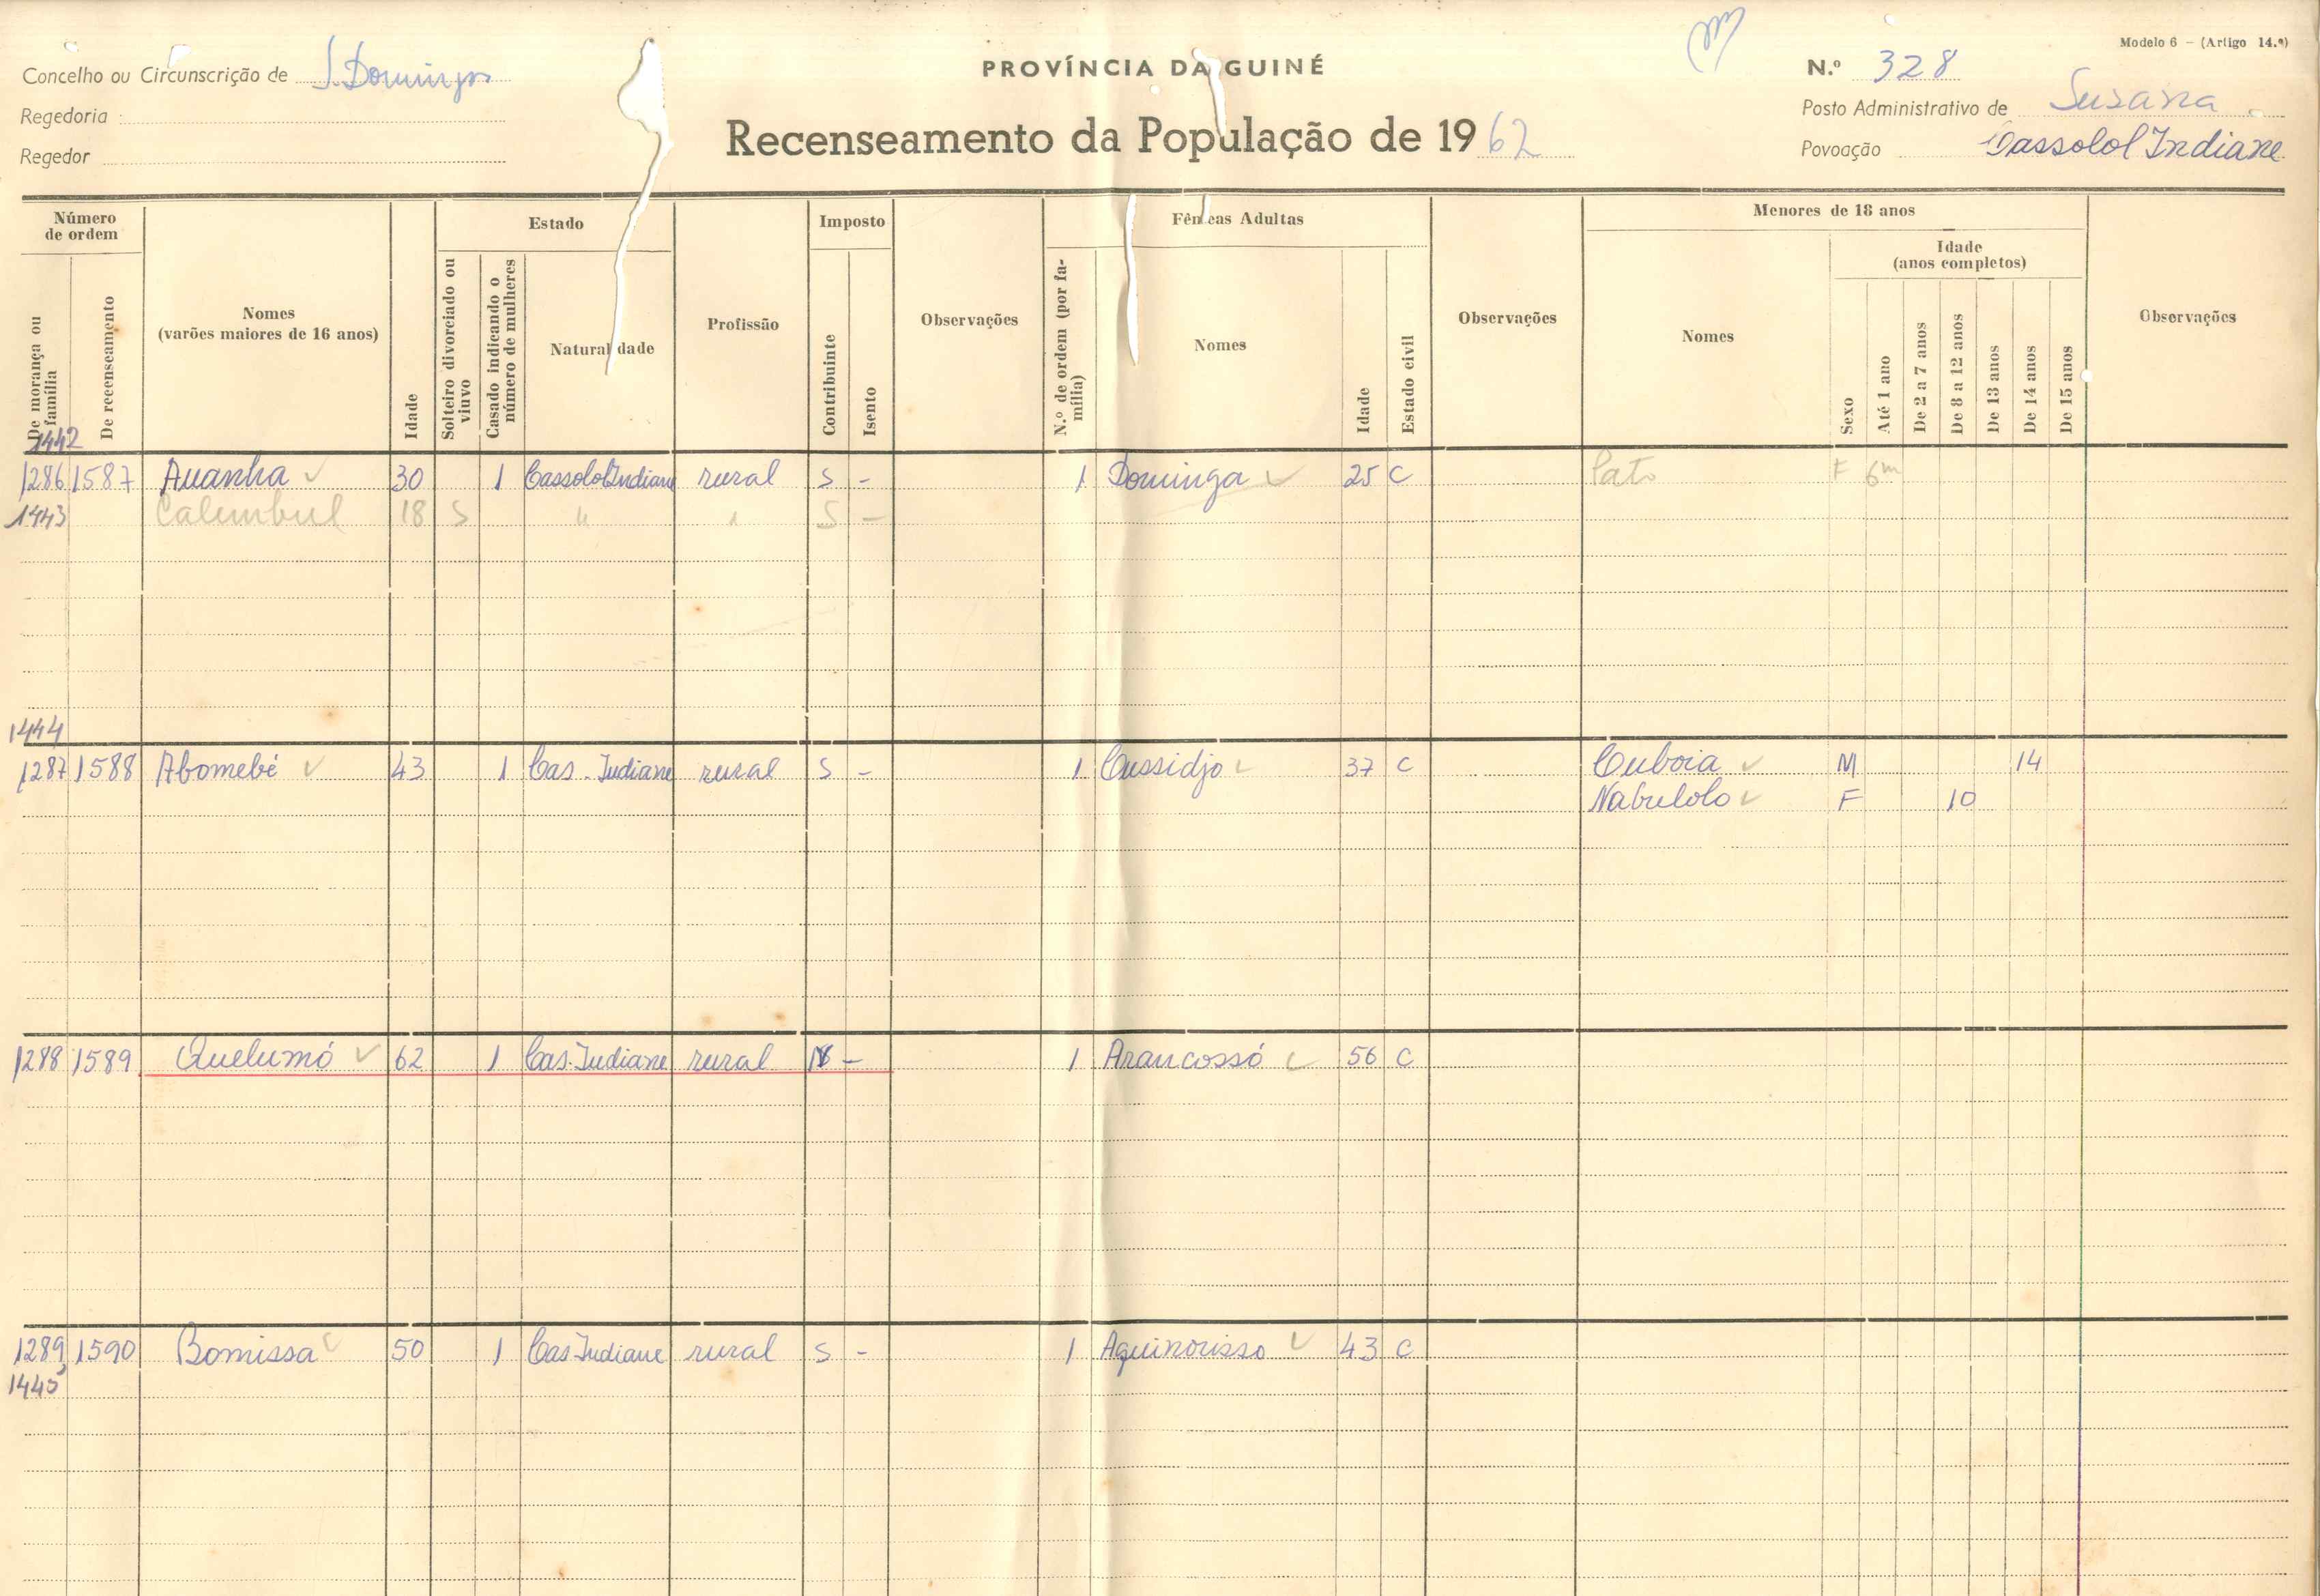 Modelo 6 – (Artigo 14.º)
Concelho ou Circunscrição de S. Domingos
PROVÍNCIA DA GUINÉ
N.º 328
Regedoria
Posto Administrativo de Susana
Regedor
Recenseamento da População de 1962
Povoação Cassolol Indiane
Número de ordem
De morança ou família
De recenseamento
Nomes (varões maiores de 16 anos)
Idade
Estado
Solteiro divorciado ou viuvo
Casado indicando o número de mulheres
Naturalidade
Profissão
Imposto
Contribuinte
Isento
Observações
N.º de ordem (por família)
Fêmeas Adultas
Nomes
Idade
Estado civil
Observações
Menores de 18 anos
Nomes
Sexo
Idade (anos completos)
Até 1 ano
De 2 a 7 anos
De 8 a 12 anos
De 13 anos
De 14 anos
De 15 anos
Observações
1442
1286 1587 Auanha 30 1 Cassolol Indiane rural S - 1 Dominga 25 C Pato F 6m
1443 Calumbul 18 S " " S -
1444
1287 1588 Abomebé 43 1 Cas. Indiane rural S - 1 Cussidjo 37 C Cuboia M 14
Nabulolo F 10
1288 1589 Quelumó 62 1 Cas. Indiane rural - 1 Arancossó 56 C
1289 1590 Bomissa 50 1 Cas. Indiane rural S - 1 Aquinorisso 43 C
1445